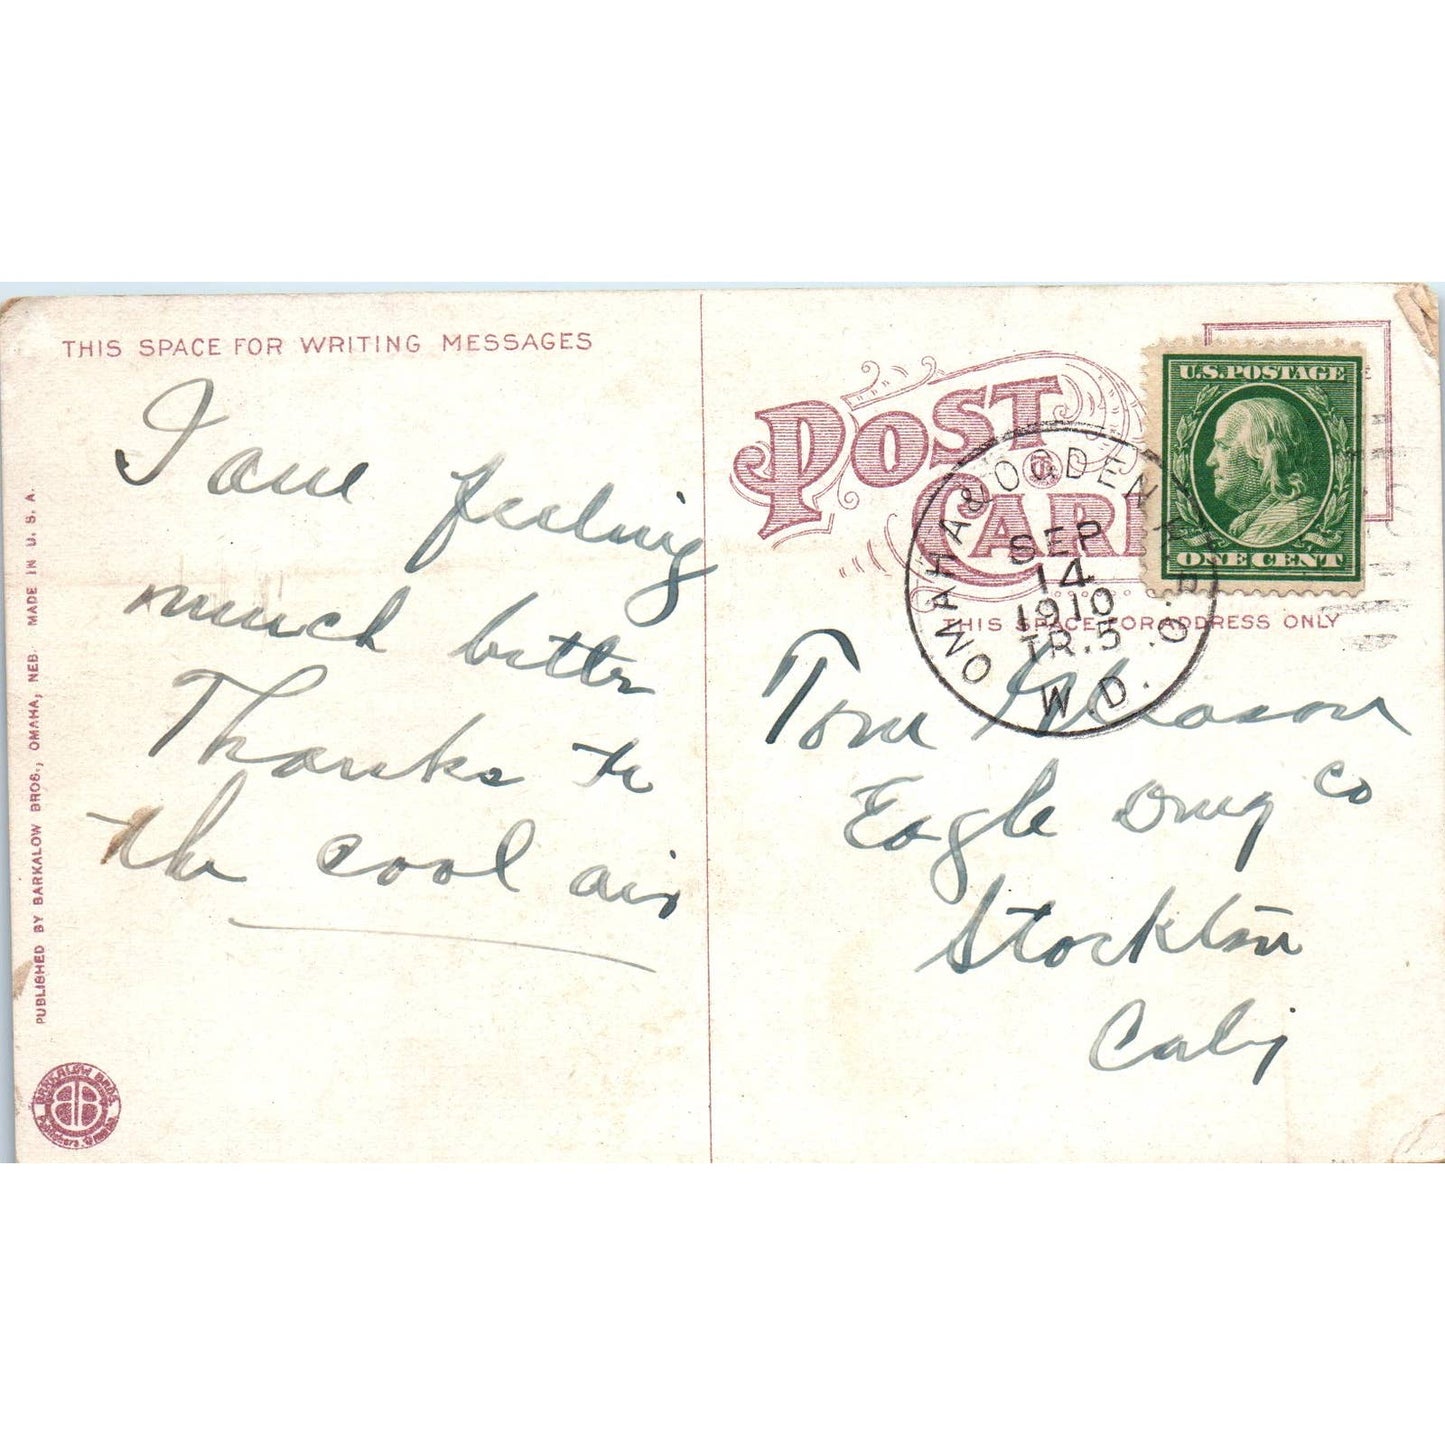 THIS SPACE FOR WRITING MESSAGES
I am feeling
much better
Thanks to
the cool air
PUBLISHED BY BARKALOW BROS., OMAHA, NEB. MADE IN U. S. A.
BARKALOW BROS.
Publishers
POST CARD
U.S. POSTAGE
ONE CENT
OMAHA & OGDEN
SEP
14
1910
TR. 5
W. D.
THIS SPACE FOR ADDRESS ONLY
Tom Gleason
Eagle Drug Co
Stockton
Calif